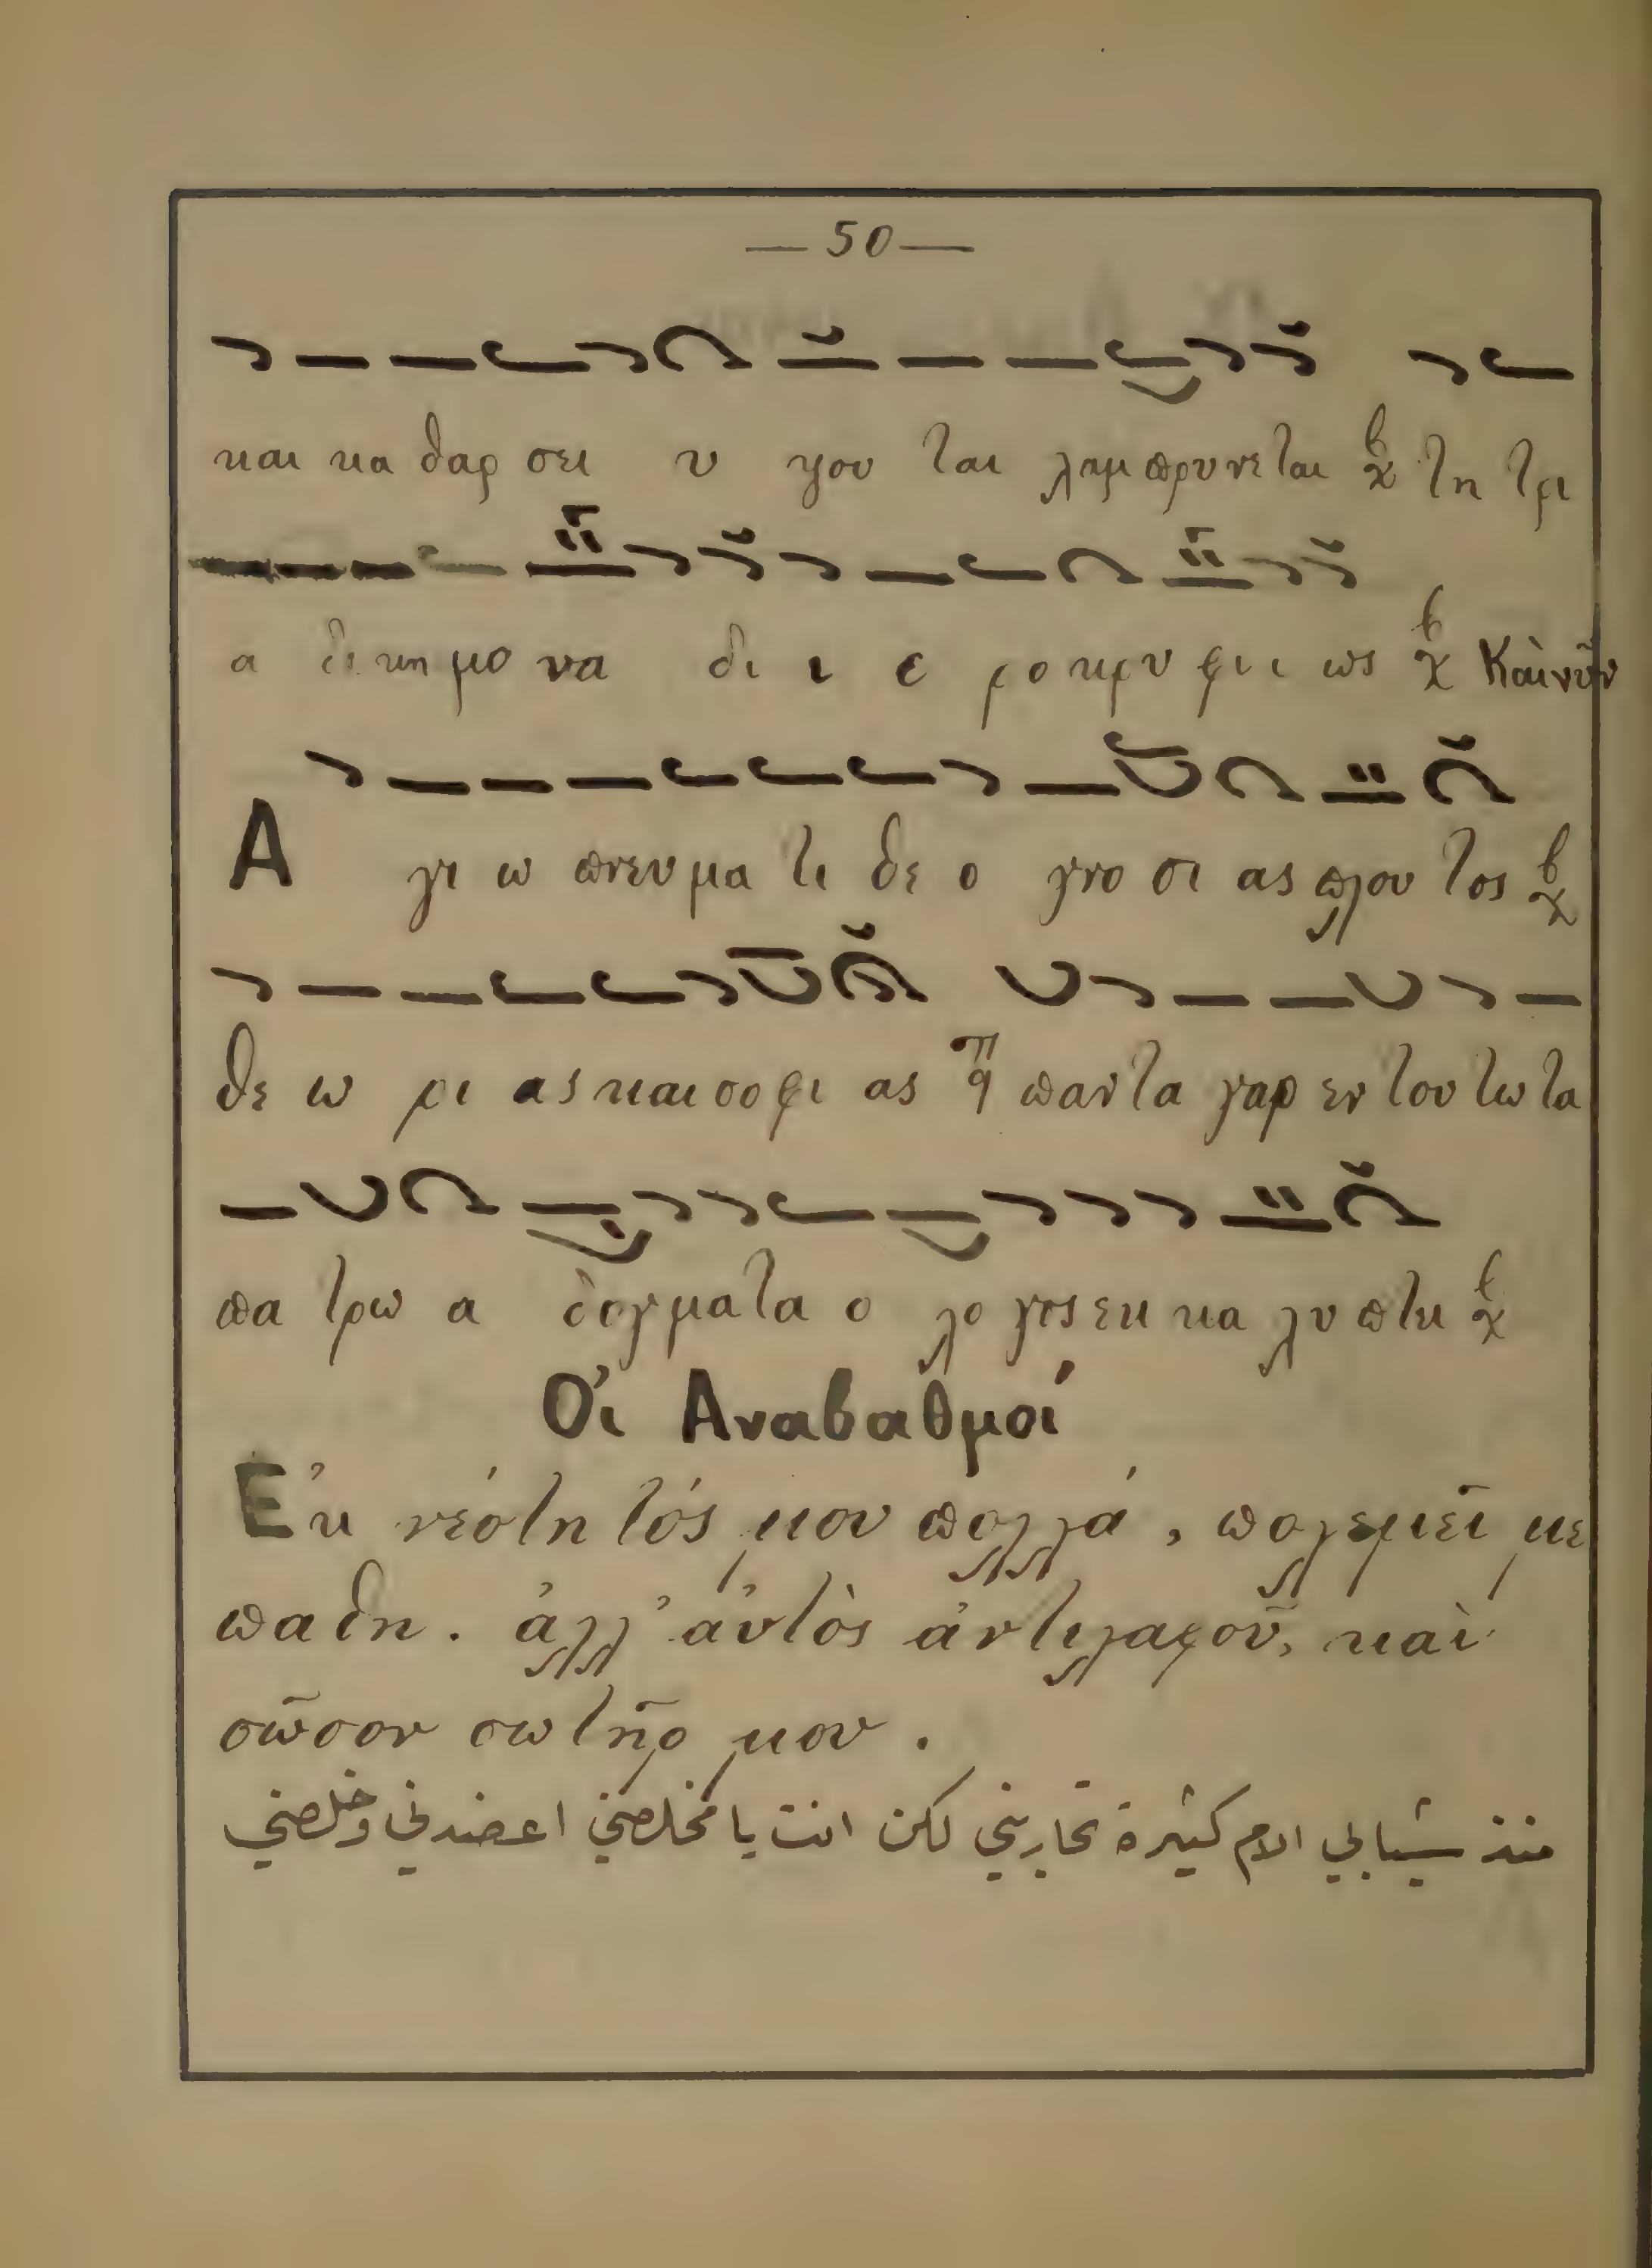 — 50 —
και κα θαρ σει υ ψου ται λαμπρυνεται β χ τη τρι
α δι κη μο να δι ι ε ρο κρυ φι ι ως β χ Καὶ νῦν
Α γι ω πνευ μα τι δε ο γνο σι ας πλου τος β χ
θε ω ρι ας και σο φι ας π q παν τα γαρ εν του τω τα
πα τρω α δογμα τα ο λο γος εκ κα λυ πτει β χ
Οἱ Αναβαθμοί
Ἐκ νεότητός μου πολλά, πολεμεῖ με
παθη. ἀλλ' ἀυτὸς ἀντιλαβοῦ, καὶ
σῶσον σωτῆρ μου.
منذ شبابي الام كثيرة تحاربني لكن انت يا مخلصني اعضدني وخلصني